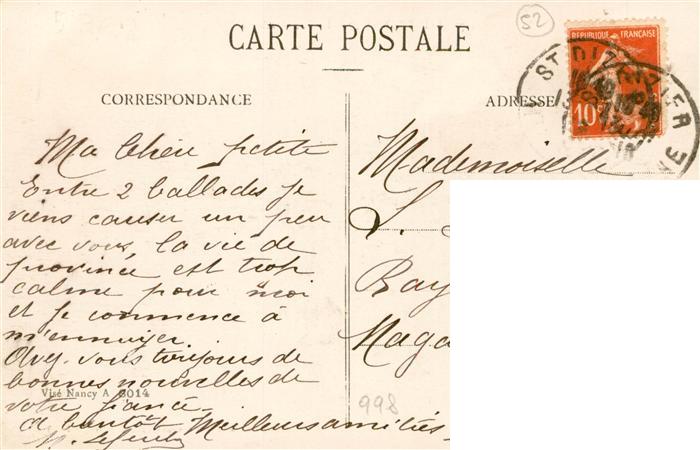 52
CARTE POSTALE
REPUBLIQUE FRANÇAISE
10
ST DIZIER
CORRESPONDANCE
ADRESSE
Ma chère petite
Entre 2 ballades je
viens causer un peu
avec vous, la vie de
province est trop
calme pour moi
et je commence à
m'ennuyer.
Avez vous toujours de
bonnes nouvelles de
votre fiancé.
A bientôt Meilleurs amitiés.
Visé Nancy A 8014
Mademoiselle
S.
Ray
Maga
998